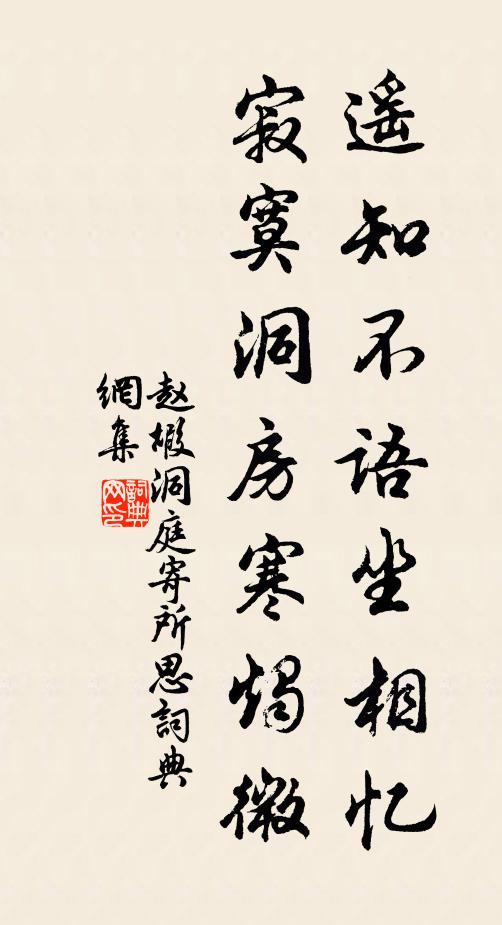 遥知不语坐相忆
寂寞洞房寒烛微
赵嘏洞庭寄所思詞典
網集
詞典
网印